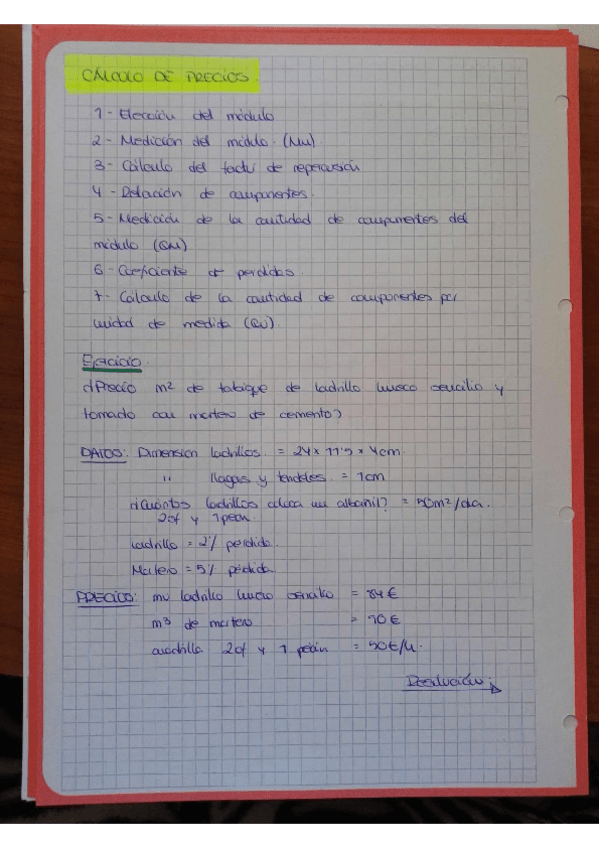 CÁLCULO DE PRECIOS.
1- Elección del módulo
2- Medición del módulo. (MM)
3- Cálculo del factor de repercusión
4- Relación de componentes.
5- Medición de la cantidad de componentes del
módulo (QM)
6- Coeficiente de perdidas.
7- Cálculo de la cantidad de componentes por
unidad de medida (QU).
Ejercicio.
¿Precio m² de tabique de ladrillo hueco sencillo y
tomado con mortero de cemento?
DATOS: Dimension ladrillos = 24 x 11'5 x 4cm.
" llagas y tendeles. = 1cm
¿Cuántos ladrillos coloca un albañil? = 50m²/día.
2of y 1 peón.
Ladrillo = 2% perdida.
Mortero = 5% pérdida
PRECIOS: mu ladrillo hueco sencillo = 84€
m³ de mortero = 70€
cuadrilla 2of y 1 peón = 50€/h.
Resolución: